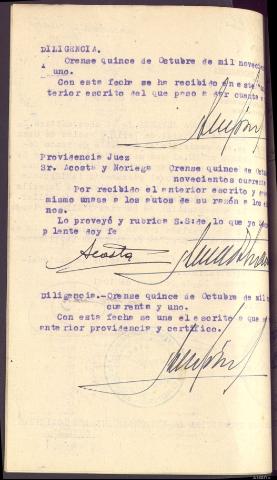 DILIGENCIA.
Orense quince de Octubre de mil novecien
uno.
Con esta fecha se ha recibido en este
terior escrito del que paso a dar cuenta
Providencia Juez
Sr. Acosta y Noriega Orense quince de Octu
novecientos cuarenta
Por recibido el anterior escrito y
mismo unase a los autos de su razón a los
nos.
Lo proveyó y rubrica S.S: de, lo que yo
plente doy fe
Acosta
Diligencia.-Orense quince de Octubre de mil
cuarenta y uno.
Con esta fecha se une el escrito a que
anterior providencia y certifico.